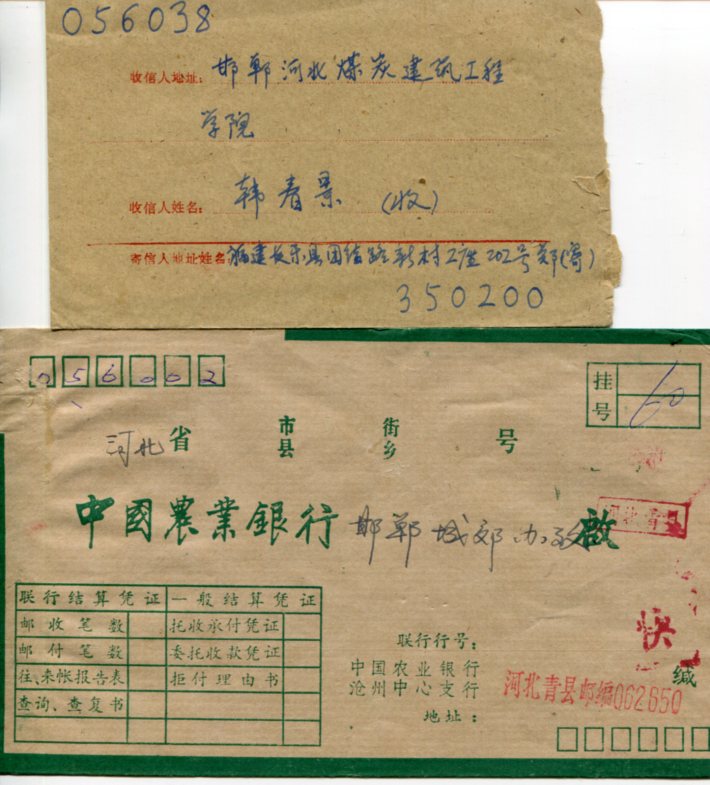 056038
收信人地址：邯郸河北煤炭建筑工程
学院
收信人姓名：韩春景（收）
寄信人地址姓名：福建长乐县团结路新村工座202号郑（寄）
350200
056002
挂号 60
河北省 市县 街乡 号
中國農業銀行 邯郸城郊办 啟
联行结算凭证 一般结算凭证
邮收笔数 托收承付凭证
邮付笔数 委托收款凭证
往、来帐报告表 拒付理由书
查询、查复书
快
联行行号：
中国农业银行
沧州中心支行 缄
河北青县邮编062650
地址：